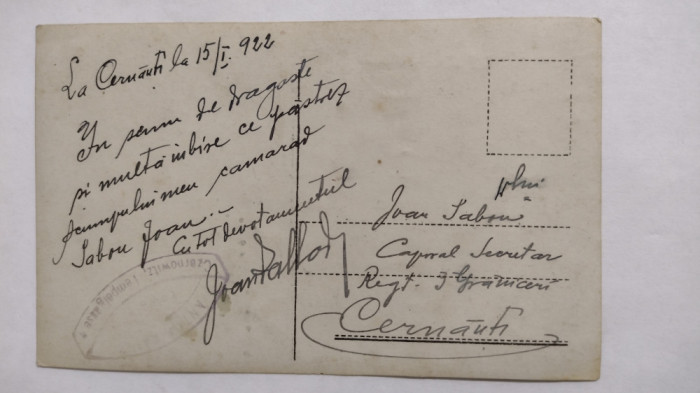 La Cernăuti la 15/I. 922
In semn de dragoste
și multă iubire ce păstrez
scumpului meu camarad
Sabou Joan. –
Cu tot devotamentul
Dlui
Joan Sabou
Caporal Secretar
Regt. 3 Grăniceri
Cernăuti
Czernowitz